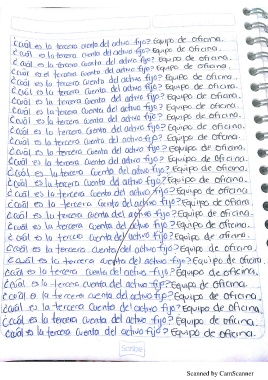 ¿Cuál es la tercera cuenta del activo fijo? Equipo de oficina.
¿Cuál es la tercera cuenta del activo fijo? Equipo de oficina.
¿Cuál es la tercera cuenta del activo fijo? Equipo de oficina.
¿Cuál es la tercera cuenta del activo fijo? Equipo de oficina.
¿Cuál es la tercera cuenta del activo fijo? Equipo de oficina.
¿Cuál es la tercera cuenta del activo fijo? Equipo de oficina.
¿Cuál es la tercera cuenta del activo fijo? Equipo de oficina.
¿Cuál es la tercera cuenta del activo fijo? Equipo de oficina.
¿Cuál es la tercera cuenta del activo fijo? Equipo de oficina.
¿Cuál es la tercera cuenta del activo fijo? Equipo de oficina.
¿Cuál es la tercera cuenta del activo fijo? Equipo de oficina.
¿Cuál es la tercera cuenta del activo fijo? Equipo de oficina.
¿Cuál es la tercera cuenta del activo fijo? Equipo de oficina.
¿Cuál es la tercera cuenta del activo fijo? Equipo de oficina.
¿Cuál es la tercera cuenta del activo fijo? Equipo de oficina.
¿Cuál es la tercera cuenta del activo fijo? Equipo de oficina.
¿Cuál es la tercera cuenta del activo fijo? Equipo de oficina.
¿Cuál es la tercera cuenta del activo fijo? Equipo de oficina.
¿Cuál es la tercera cuenta del activo fijo? Equipo de oficina.
¿Cuál es la tercera cuenta del activo fijo? Equipo de oficina.
¿Cuál es la tercera cuenta del activo fijo? Equipo de oficina.
¿Cuál es la tercera cuenta del activo fijo? Equipo de oficina.
¿Cuál es la tercera cuenta del activo fijo? Equipo de oficina.
¿Cuál es la tercera cuenta del activo fijo? Equipo de oficina.
¿Cuál es la tercera cuenta del activo fijo? Equipo de oficina.
¿Cuál es la tercera cuenta del activo fijo? Equipo de oficina.
¿Cuál es la tercera cuenta del activo fijo? Equipo de oficina.
Scribe
Scanned by CamScanner